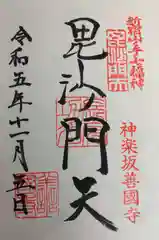 新宿山ノ手七福神
毘沙門天
神楽坂善國寺
令和五年十一月五日